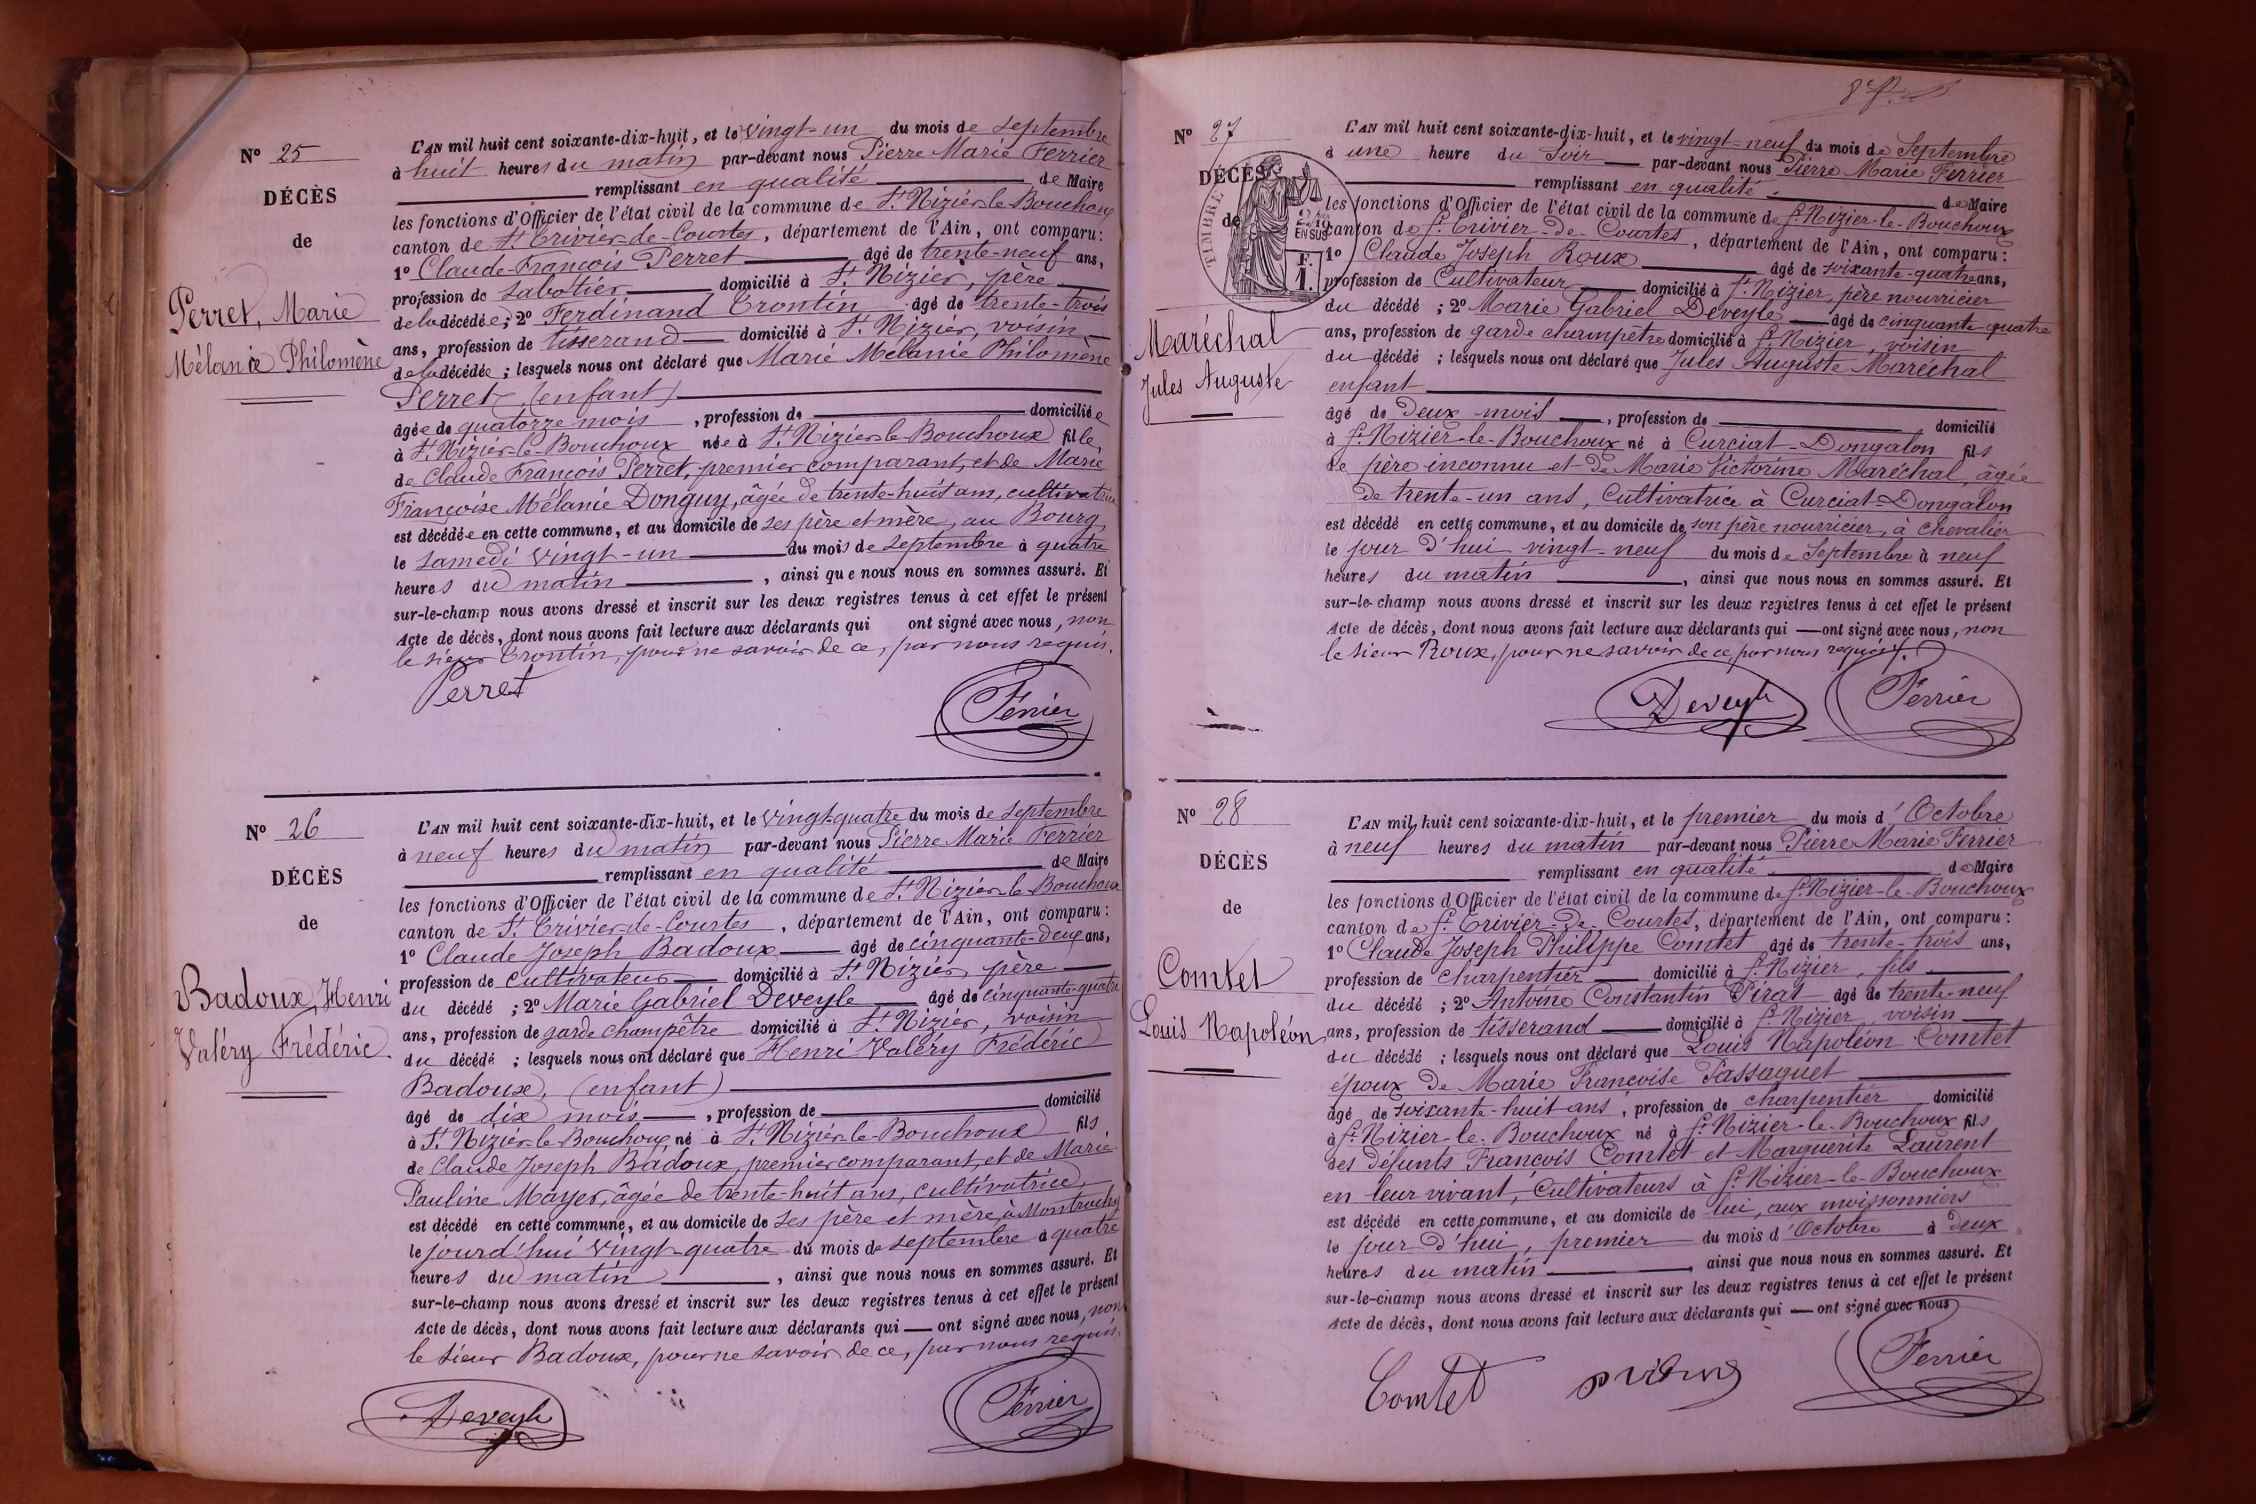 N° 25
DÉCÈS
de
Perret, Marie
Mélanie Philomène
L'AN mil huit cent soixante-dix-huit, et le vingt-un du mois de septembre
à huit heures du matin par-devant nous Pierre Marie Ferrier
remplissant en qualité de Maire
les fonctions d'Officier de l'état civil de la commune de St Nizier-le-Bouchoux
canton de St Trivier-de-Courtes, département de l'Ain, ont comparu:
1° Claude-François Perret âgé de trente-neuf ans,
profession de sabotier domicilié à St Nizier, père
de la décédée; 2° Ferdinand Trontin âgé de trente-trois
ans, profession de tisserand domicilié à St Nizier, voisin
de la décédée; lesquels nous ont déclaré que Marie Mélanie Philomène
Perret, (enfant)
âgée de quatorze mois, profession de domiciliée
à St Nizier-le-Bouchoux née à St Nizier-le-Bouchoux fille
de Claude François Perret, premier comparant, et de Marie
Françoise Mélanie Donguy, âgée de trente-huit ans, cultivatrice
est décédée en cette commune, et au domicile de ses père et mère, au Bourg,
le samedi vingt-un du mois de septembre à quatre
heures du matin, ainsi que nous nous en sommes assuré. Et
sur-le-champ nous avons dressé et inscrit sur les deux registres tenus à cet effet le présent
Acte de décès, dont nous avons fait lecture aux déclarants qui ont signé avec nous, non
le sieur Trontin, pour ne savoir de ce, par nous requis.
Perret Ferrier
N° 26
DÉCÈS
de
Badoux, Henri
Valéry Frédéric.
L'AN mil huit cent soixante-dix-huit, et le vingt-quatre du mois de septembre
à neuf heures du matin par-devant nous Pierre Marie Ferrier
remplissant en qualité de Maire
les fonctions d'Officier de l'état civil de la commune de St Nizier-le-Bouchoux
canton de St Trivier-de-Courtes, département de l'Ain, ont comparu:
1° Claude Joseph Badoux âgé de cinquante-deux ans,
profession de cultivateur domicilié à St Nizier, père
du décédé; 2° Marie Gabriel Deveyle âgé de cinquante-quatre
ans, profession de garde champêtre domicilié à St Nizier, voisin
du décédé; lesquels nous ont déclaré que Henri Valéry Frédéric
Badoux, (enfant)
âgé de dix mois, profession de domicilié
à St Nizier-le-Bouchoux né à St Nizier-le-Bouchoux fils
de Claude Joseph Badoux, premier comparant, et de Marie
Pauline Mayer, âgée de trente-huit ans, cultivatrice,
est décédé en cette commune, et au domicile de ses père et mère, à Montrachy
le jourd'hui vingt-quatre du mois de septembre à quatre
heures du matin, ainsi que nous nous en sommes assuré. Et
sur-le-champ nous avons dressé et inscrit sur les deux registres tenus à cet effet le présent
Acte de décès, dont nous avons fait lecture aux déclarants qui ont signé avec nous, non
le sieur Badoux, pour ne savoir de ce, par nous requis.
Deveyle Ferrier
N° 27
DÉCÈS
de
TIMBRE
2/10
EN SUS
F.
1.
Maréchal
Jules Auguste
L'AN mil huit cent soixante-dix-huit, et le vingt-neuf du mois de Septembre
à une heure du Soir par-devant nous Pierre Marie Ferrier
remplissant en qualité de Maire
les fonctions d'Officier de l'état civil de la commune de St Nizier-le-Bouchoux
canton de St Trivier-de-Courtes, département de l'Ain, ont comparu:
1° Claude Joseph Roux âgé de soixante-quatre ans,
profession de Cultivateur domicilié à St Nizier, père nourricier
du décédé; 2° Marie Gabriel Deveyle âgé de cinquante-quatre
ans, profession de garde champêtre domicilié à St Nizier, voisin
du décédé; lesquels nous ont déclaré que Jules Auguste Maréchal
enfant
âgé de Deux mois, profession de domicilié
à St Nizier-le-Bouchoux né à Curciat-Dongalon fils
de père inconnu et de Marie Victorine Maréchal, âgée
de trente-un ans, Cultivatrice à Curciat-Dongalon
est décédé en cette commune, et au domicile de son père nourricier, à Chevalier
le jour d'hui vingt-neuf du mois de Septembre à neuf
heures du matin, ainsi que nous nous en sommes assuré. Et
sur-le-champ nous avons dressé et inscrit sur les deux registres tenus à cet effet le présent
Acte de décès, dont nous avons fait lecture aux déclarants qui ont signé avec nous, non
le sieur Roux, pour ne savoir de ce par nous requis.
Deveyle Ferrier
N° 28
DÉCÈS
de
Comtet
Louis Napoléon
L'AN mil huit cent soixante-dix-huit, et le premier du mois d'Octobre
à neuf heures du matin par-devant nous Pierre Marie Ferrier
remplissant en qualité de Maire
les fonctions d'Officier de l'état civil de la commune de St Nizier-le-Bouchoux
canton de St Trivier-de-Courtes, département de l'Ain, ont comparu:
1° Claude Joseph Philippe Comtet âgé de trente-trois ans,
profession de charpentier domicilié à St Nizier, fils
du décédé; 2° Antoine Constantin Pirat âgé de trente-neuf
ans, profession de tisserand domicilié à St Nizier, voisin
du décédé; lesquels nous ont déclaré que Louis Napoléon Comtet
époux de Marie Françoise Passaquet
âgé de soixante-huit ans, profession de charpentier domicilié
à St Nizier-le-Bouchoux né à St Nizier-le-Bouchoux fils
des défunts François Comtet et Marguerite Laurent
en leur vivant, Cultivateurs à St Nizier-le-Bouchoux
est décédé en cette commune, et au domicile de lui, aux moissonniers
le jour d'hui, premier du mois d'Octobre à deux
heures du matin, ainsi que nous nous en sommes assuré. Et
sur-le-champ nous avons dressé et inscrit sur les deux registres tenus à cet effet le présent
Acte de décès, dont nous avons fait lecture aux déclarants qui ont signé avec nous
Comtet Ferrier